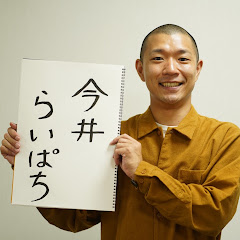 今井
らいぱち